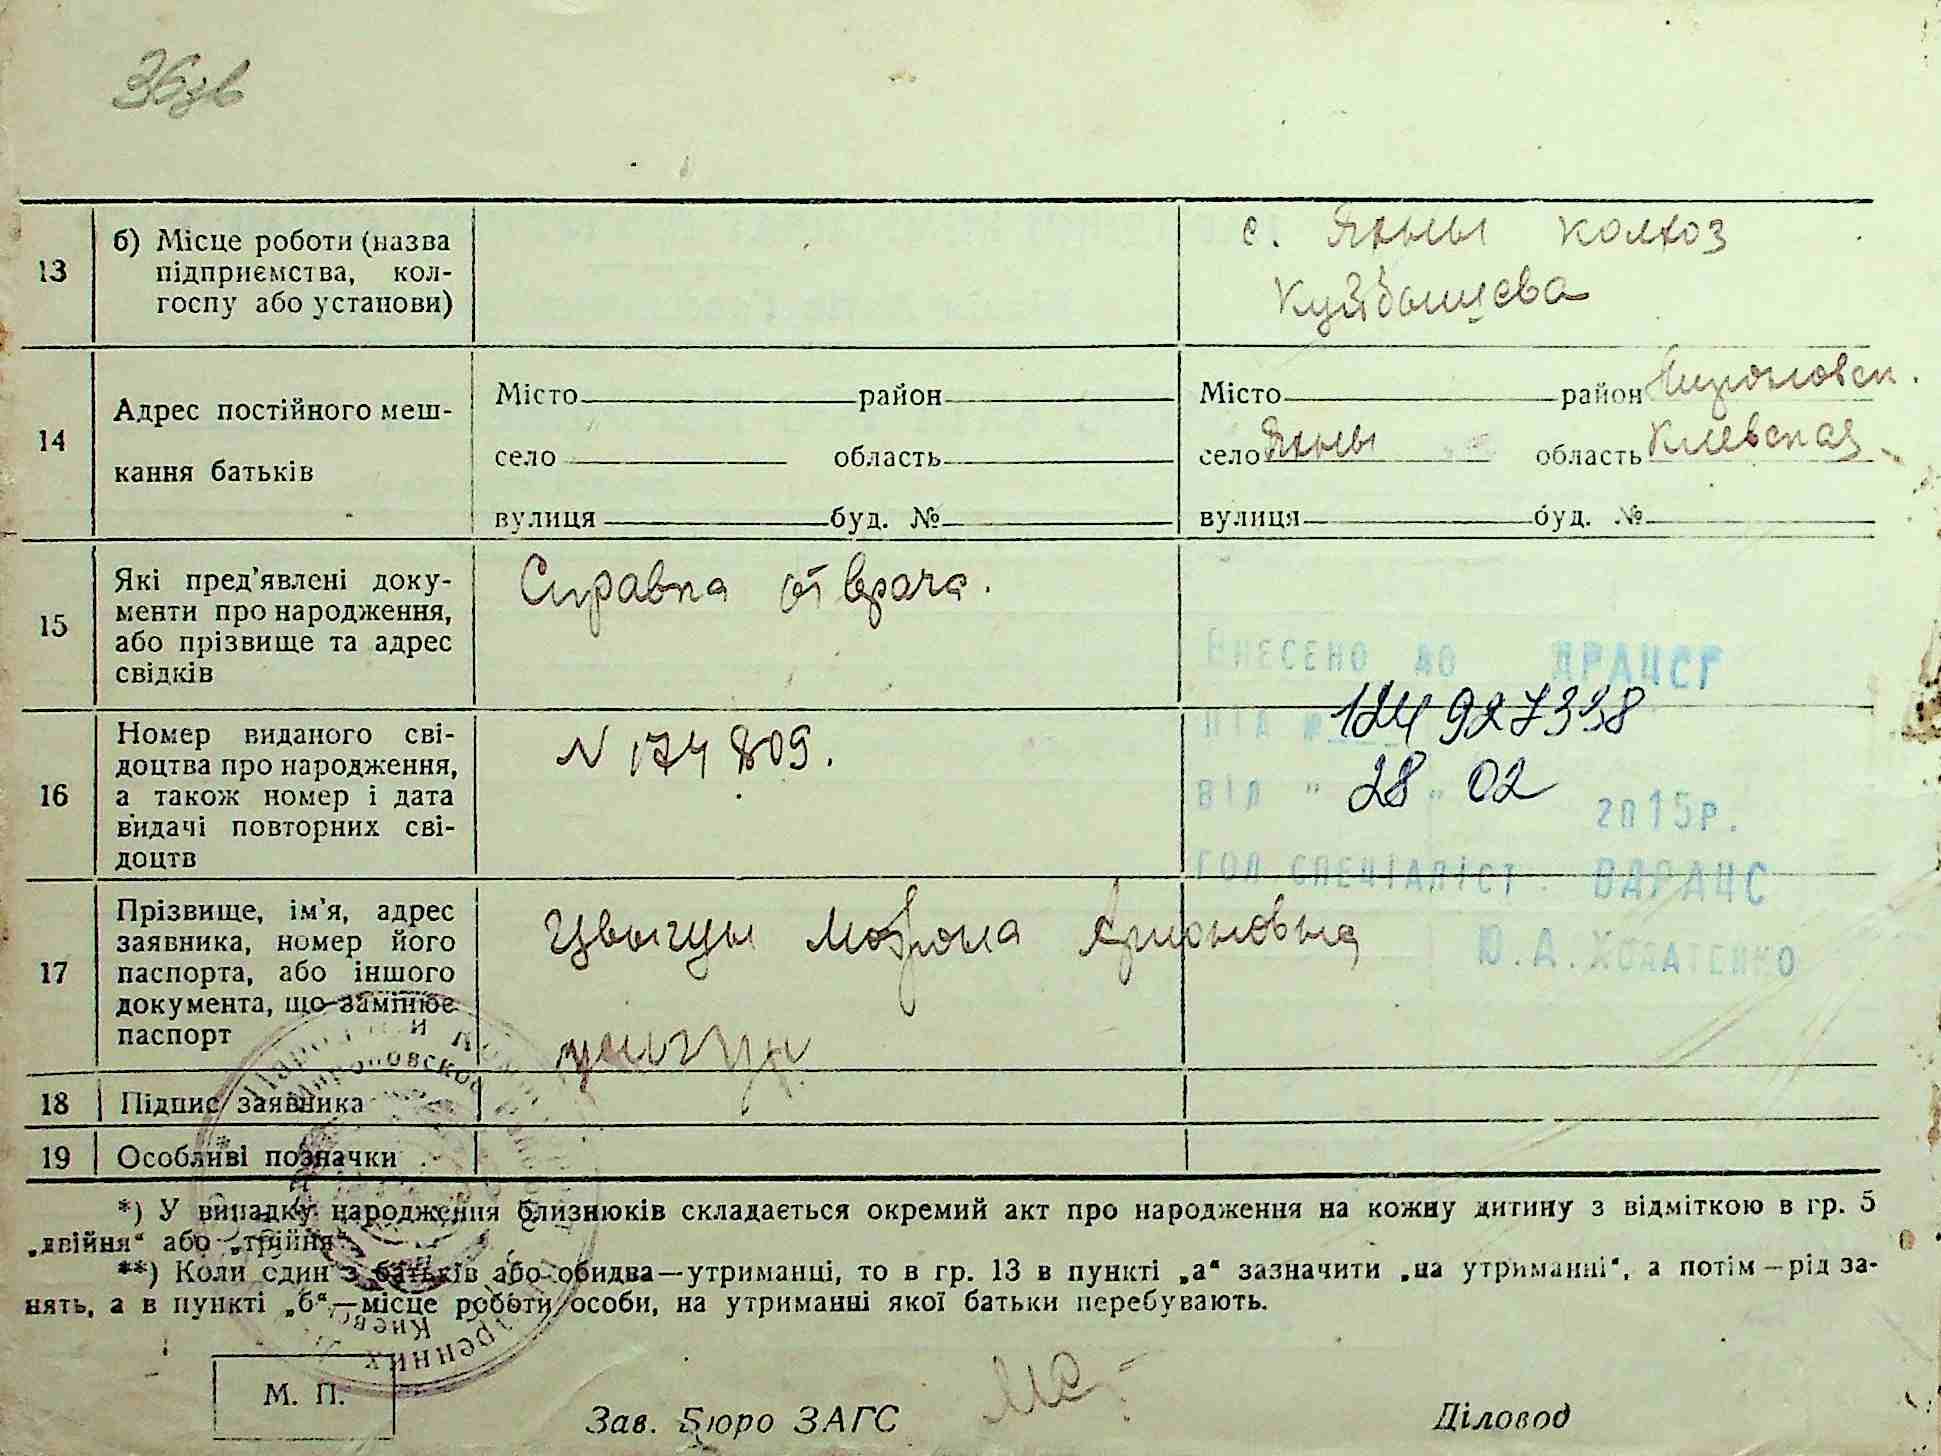 36зв
13
б) Місце роботи (назва
підприємства, кол-
госпу або установи)
с. Яхны колхоз
Куйбышева
14
Адрес постійного меш-
кання батьків
Місто район
село область
вулиця буд. №
Місто район Мироновск.
село Яхны область Киевская
вулиця буд. №
15
Які пред'явлені доку-
менти про народження,
або прізвище та адрес
свідків
Справка от врача.
Внесено до ДРАЦСГ
16
Номер виданого сві-
доцтва про народження,
а також номер і дата
видачі повторних сві-
доцтв
N 174809.
№ 124927338
від " 28 " 02 2015р.
гол.спеціаліст ВДРАЦС
Ю.А.
17
Прізвище, ім'я, адрес
заявника, номер його
паспорта, або іншого
документа, що замінює
паспорт
18
Підпис заявника
19
Особливі позначки
*) У випадку народження близнюків складається окремий акт про народження на кожну дитину з відміткою в гр. 5
„двійня“ або „трійня“.
**) Коли один з батьків або обидва—утриманці, то в гр. 13 в пункті „а“ зазначити „на утриманні“, а потім—рід за-
нять, а в пункті „б“—місце роботи особи, на утриманні якої батьки перебувають.
М. П.
Зав. Бюро ЗАГС
Діловод